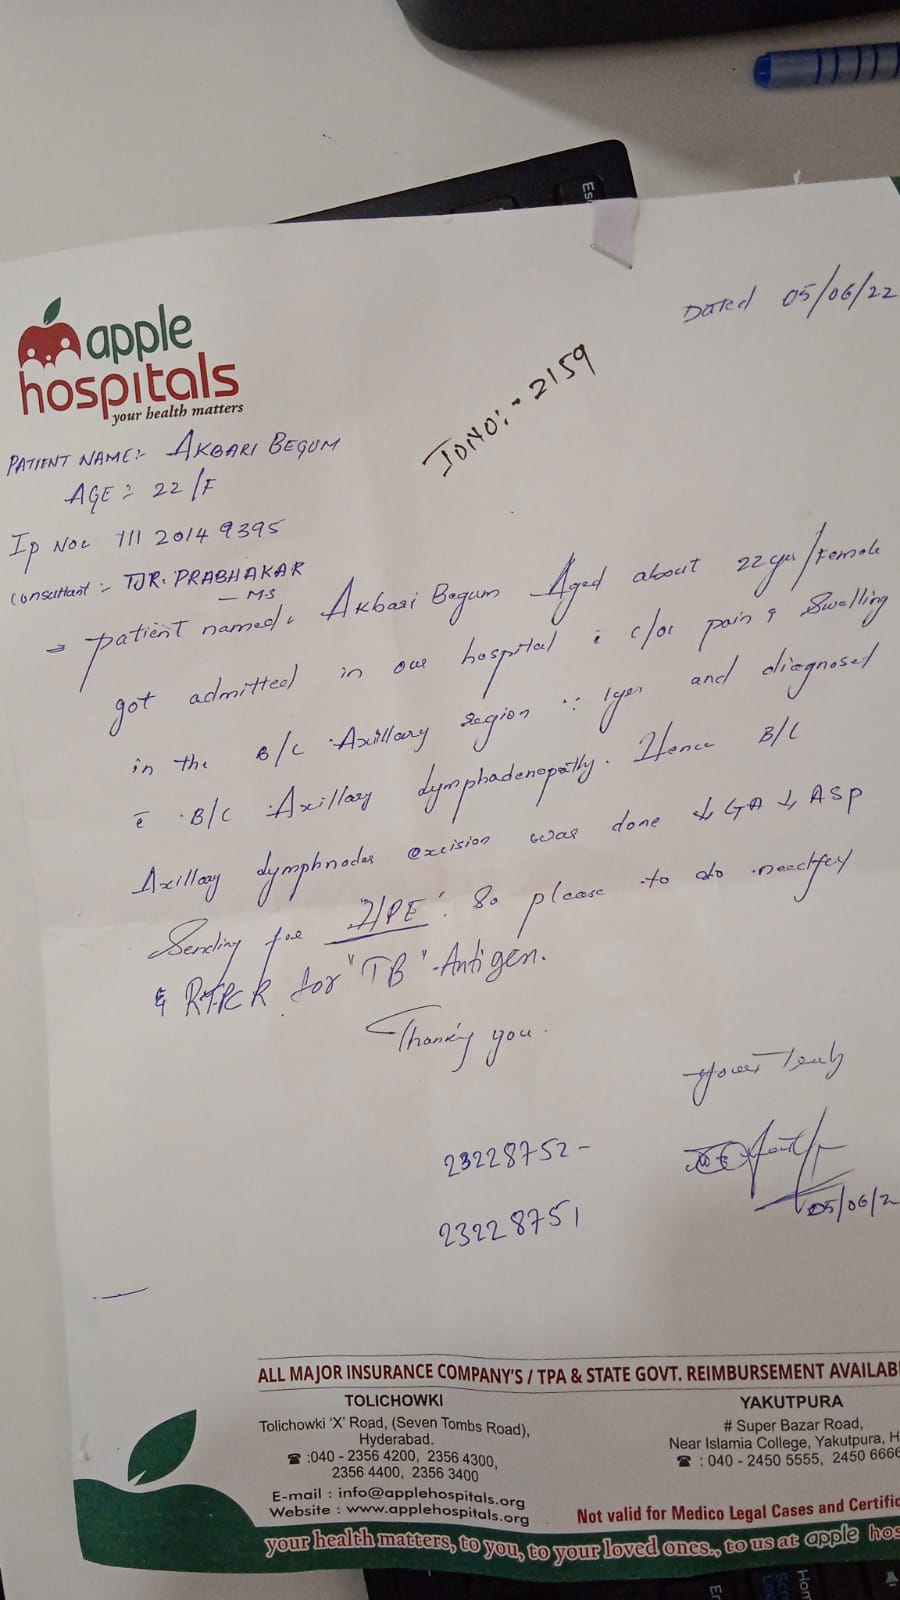 Dated 05/06/22
apple
hospitals
your health matters
IDNO:- 2159
PATIENT NAME:- AKBARI BEGUM
AGE :- 22/F
Ip No: 111 2014 9395
Consultant :- DR. PRABHAKAR
- MS
→ patient named, Akbari Begum Aged about 22yrs/Female
got admitted in our hospital c̄ c/o pain & Swelling
in the B/L Axillary region ∵ 1yr and diagnosed
c̄ B/L Axillary lymphadenopathy. Hence B/L
Axillary lymphnodes excision was done ↓ GA ↓ ASP
Sending for "HPE". So please to do needful
& RTPCR for "TB" Antigen.
Thanking you.
yours Truly
23228752-
05/06/2
23228751
ALL MAJOR INSURANCE COMPANY'S / TPA & STATE GOVT. REIMBURSEMENT AVAILAB
TOLICHOWKI
Tolichowki 'X' Road, (Seven Tombs Road),
Hyderabad.
☎ :040 - 2356 4200, 2356 4300,
2356 4400, 2356 3400
E-mail : info@applehospitals.org
Website : www.applehospitals.org
YAKUTPURA
# Super Bazar Road,
Near Islamia College, Yakutpura, H
☎ : 040 - 2450 5555, 2450 6666
Not valid for Medico Legal Cases and Certific
your health matters, to you, to your loved ones., to us at apple hos
Esc
Hom